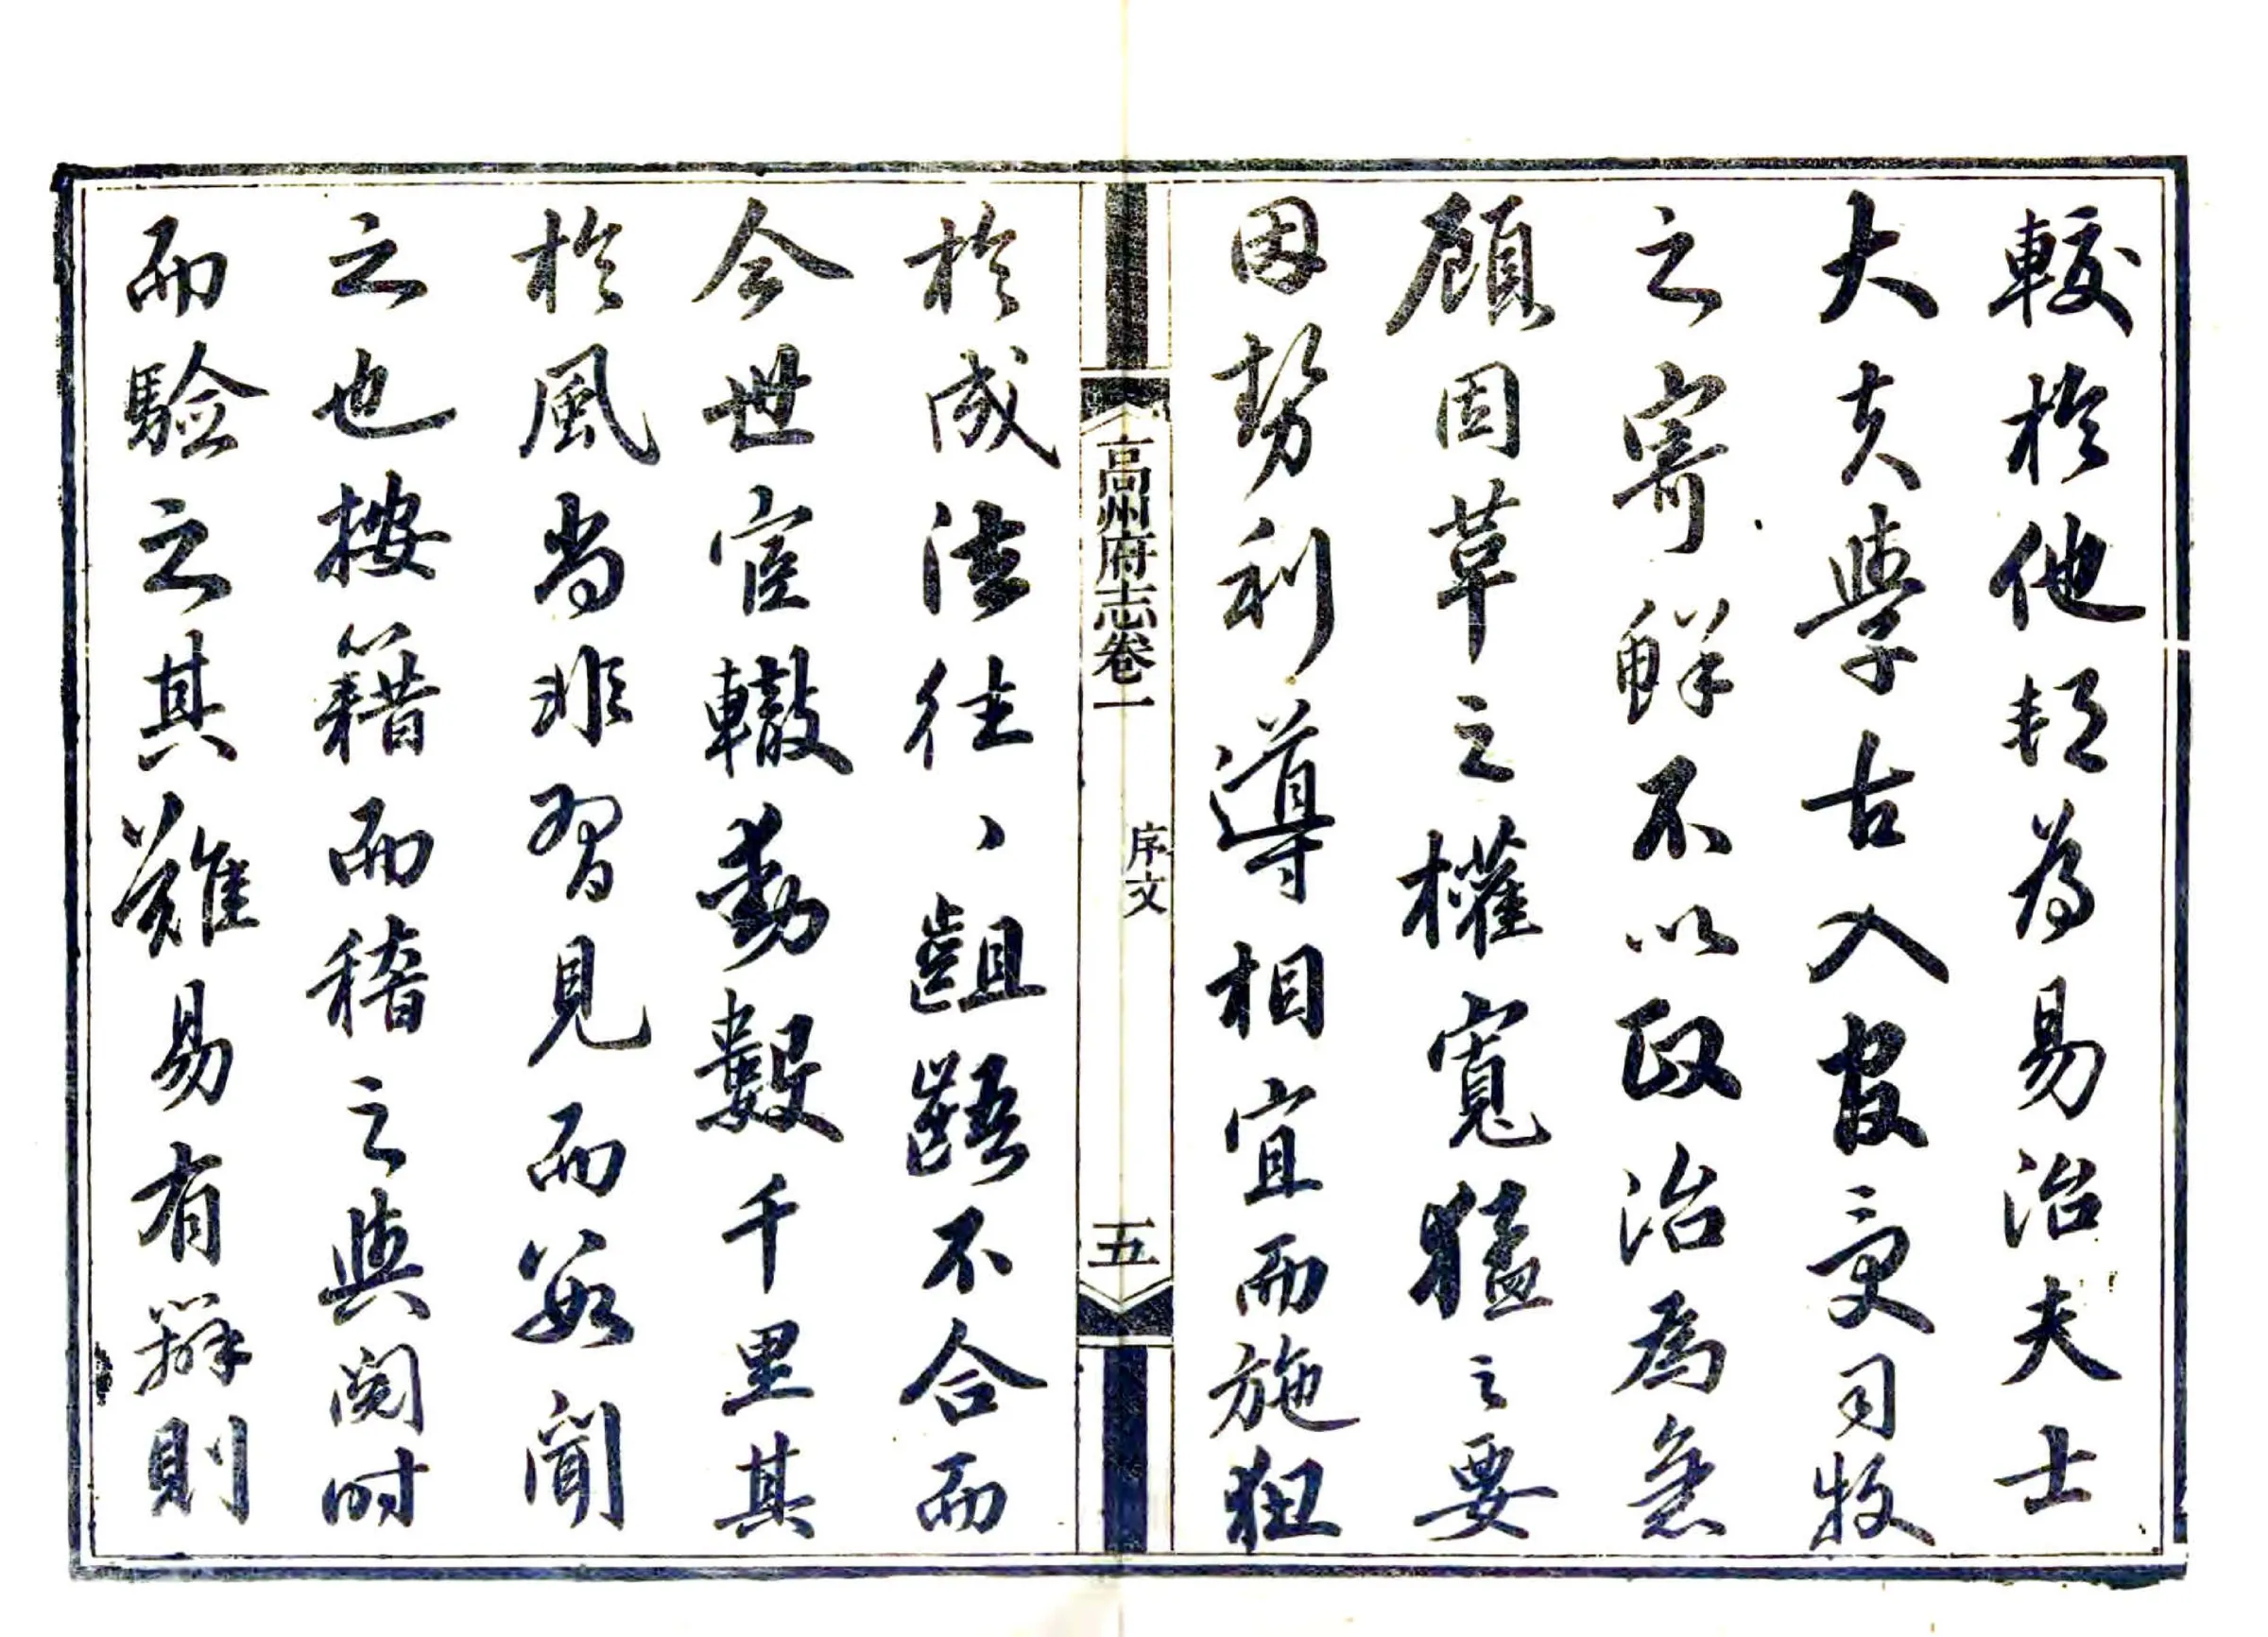 較於他邦為易治夫士
大夫學古入官受司牧
之寄鮮不以政治為急
顧因革之權寬猛之要
因勢利導相宜而施狃
高州府志卷一 序文 五
於成法往、齟齬不合而
今世宦轍動數千里其
於風尚非習見而數聞
之也按籍而稽之與閱時
而驗之其難易有辨則